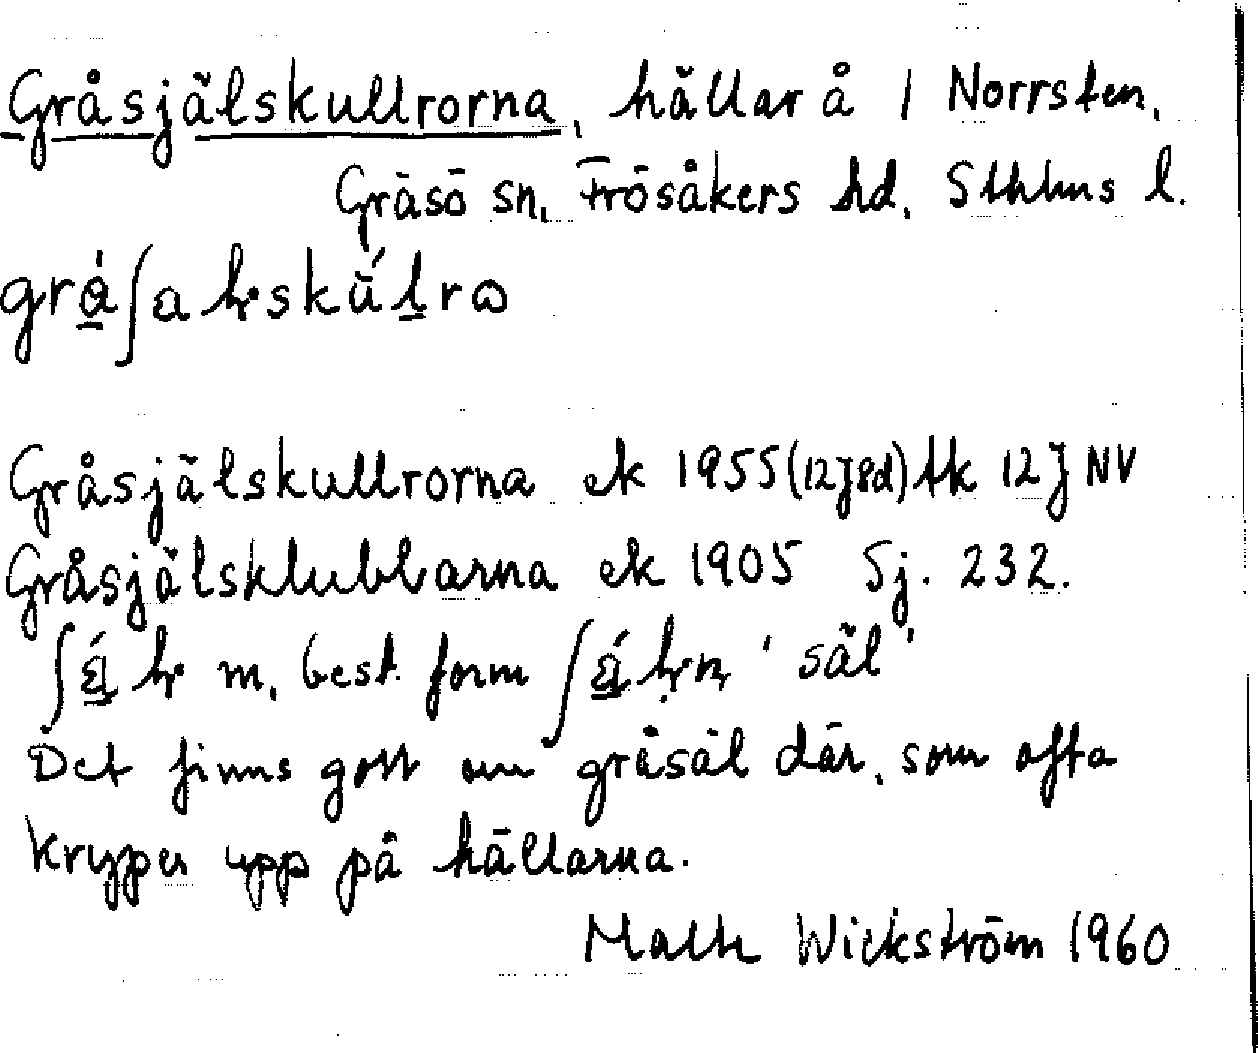 Gråsjälskullrorna, hällar å 1 Norrsten,
Gräsö sn, Frösåkers hd, Sthlms l.
Gråsjälskullrorna ek 1955 (12J8d) tk 12 J NV
Gråsjälsklubbarna ek 1905 Sj. 232.
m, best form 'säl'
Det finns gott om gråsäl där, som ofta
kryper upp på hällarna.
Wickström 1960